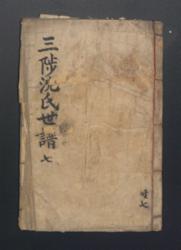 三陟沈氏世譜
七